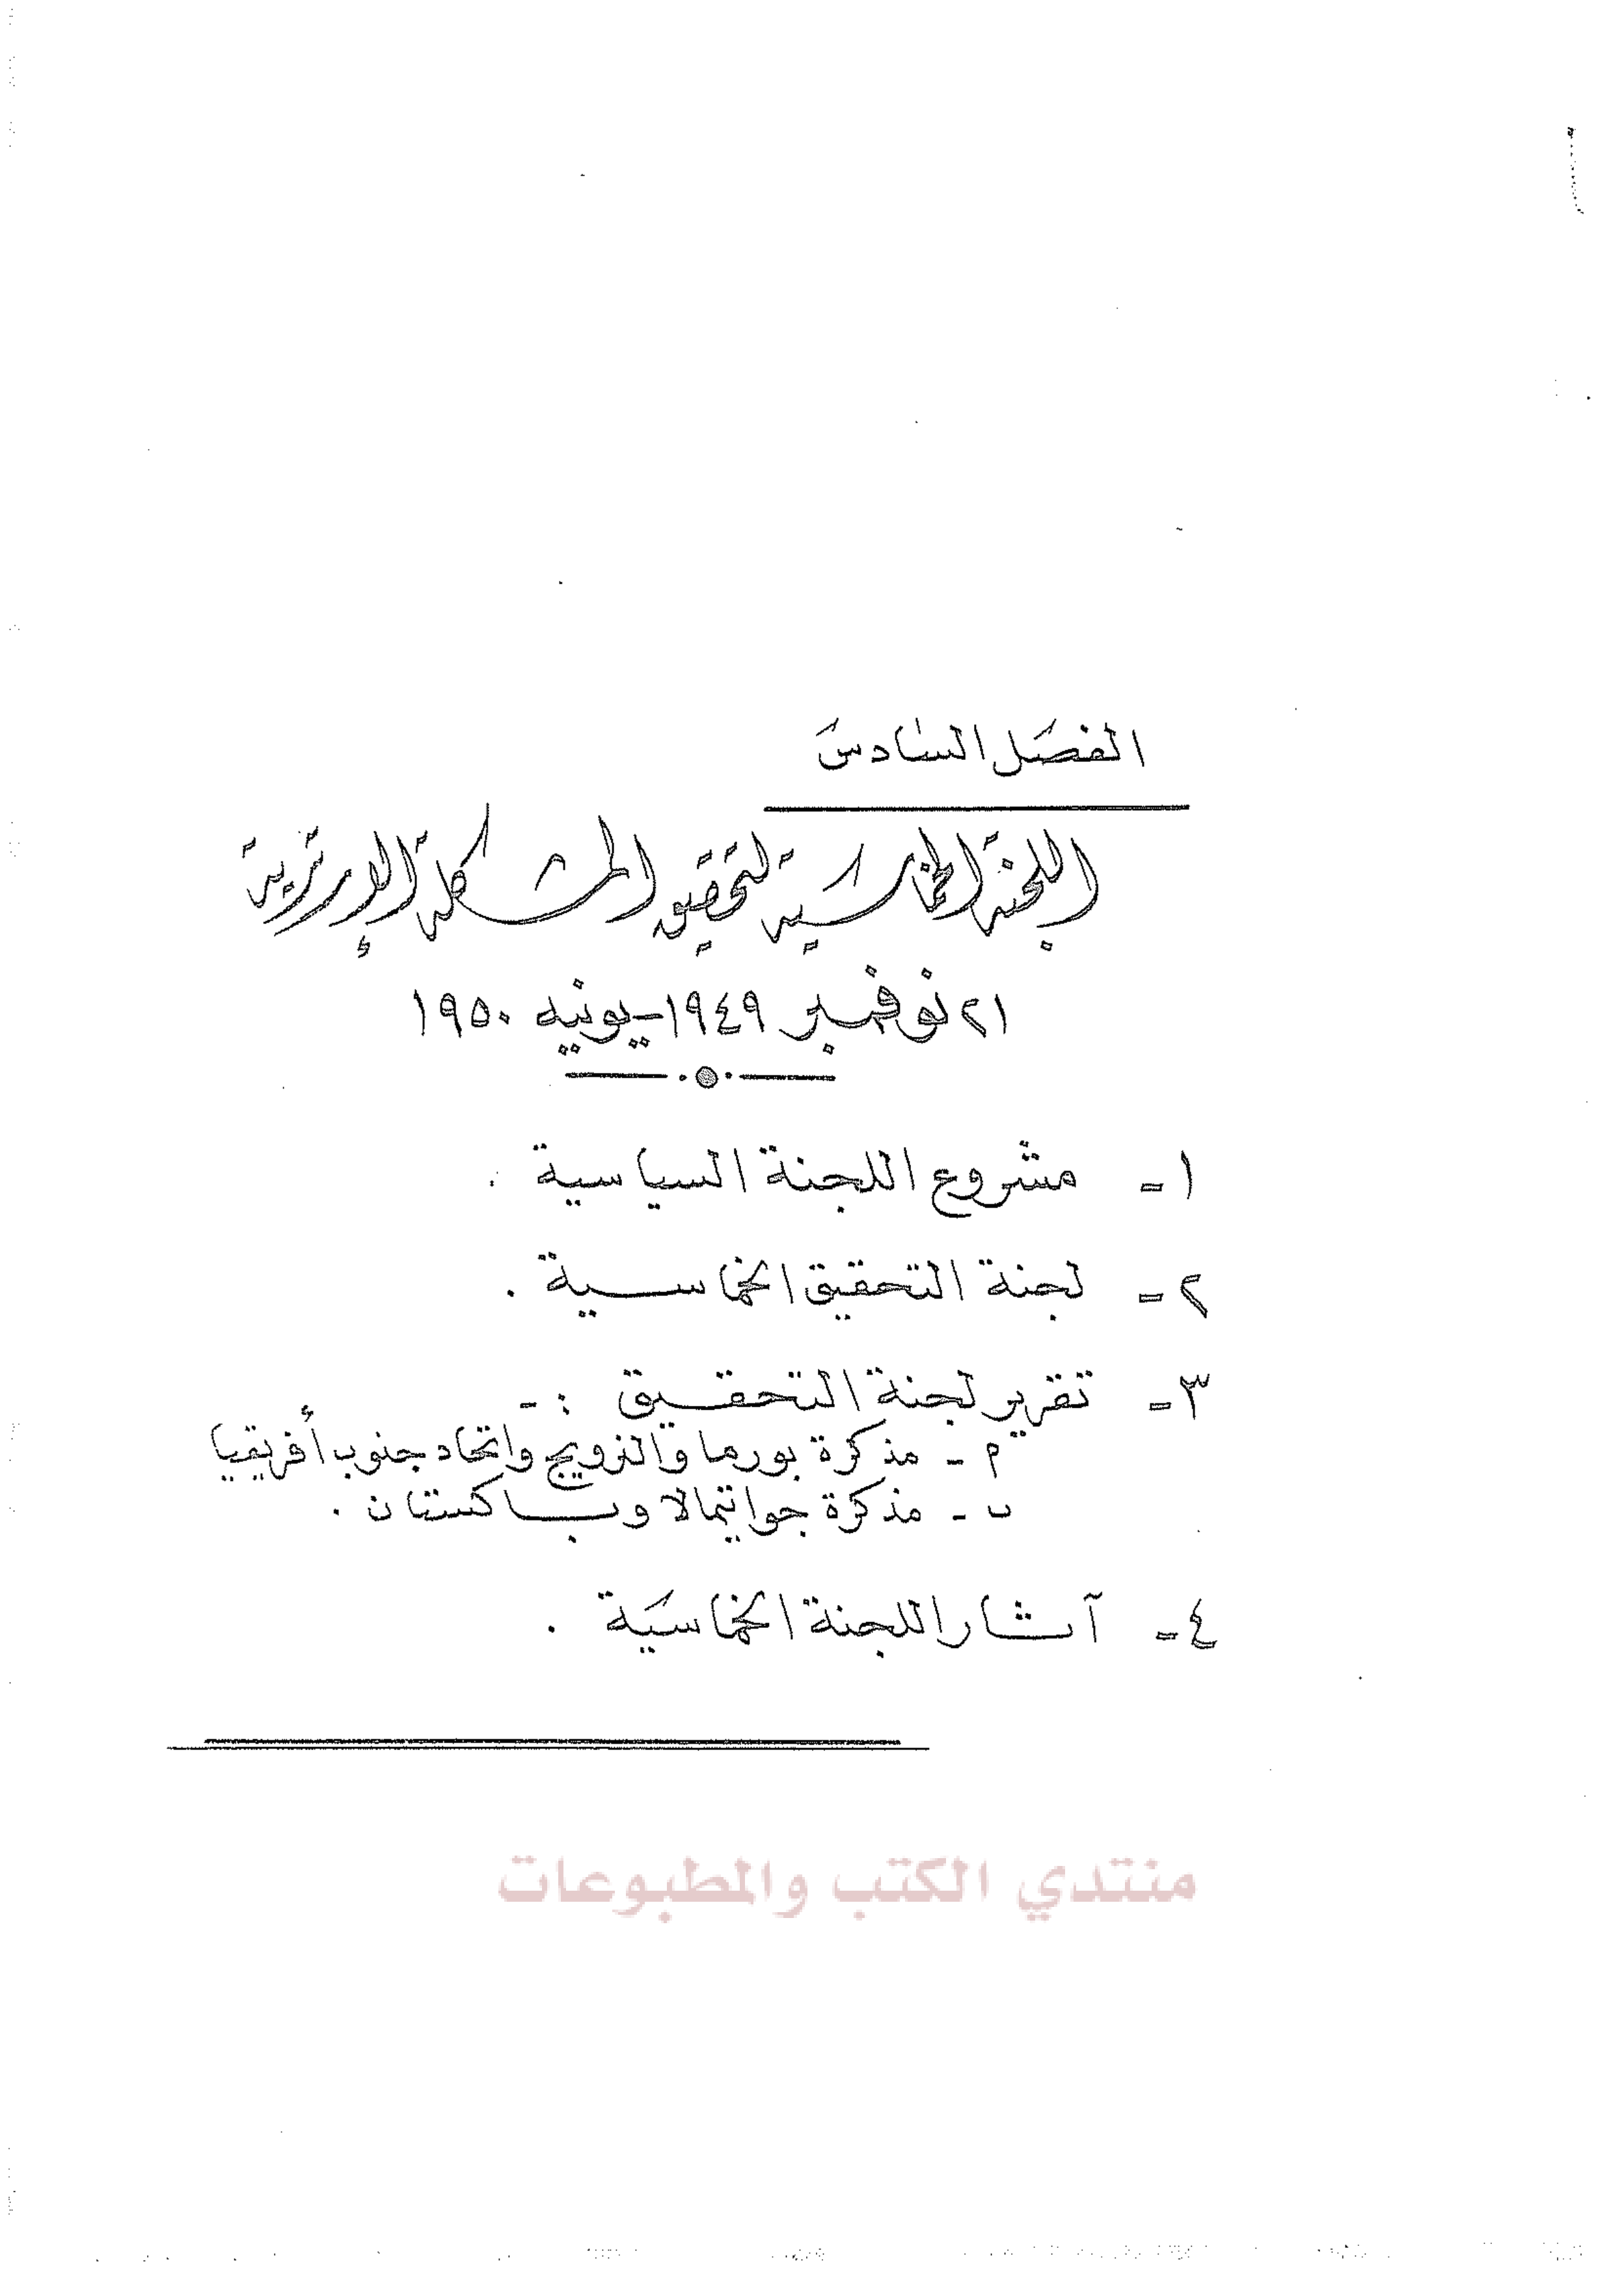 الفصل السادس
اللجنة الخماسية لتحقيق المشكلة الإرترية
٢١ نوفمبر ١٩٤٩ - يونيه ١٩٥٠
١- مشروع اللجنة السياسية .
٢- لجنة التحقيق الخماسية .
٣- تقرير لجنة التحقيق :-
م - مذكرة بورما والنرويج واتحاد جنوب أفريقيا
ب - مذكرة جواتيمالا وباكستان .
٤- آثار اللجنة الخماسية .
منتدي الكتب والمطبوعات